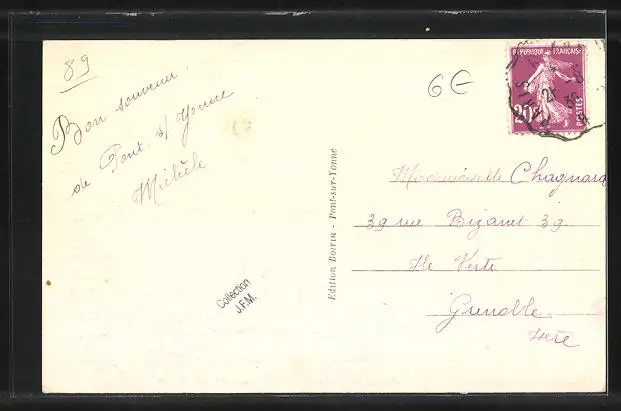 89
Bon souvenir
de Pont s/ Yonne
Michèle
6€
RÉPUBLIQUE FRANÇAISE
20c
POSTES
Edition Boivin - Pont-sur-Yonne
Mademoiselle Chagnard
39 rue Bizanet 39
Ile Verte
Grenoble
Isère
Collection
J.F.M.